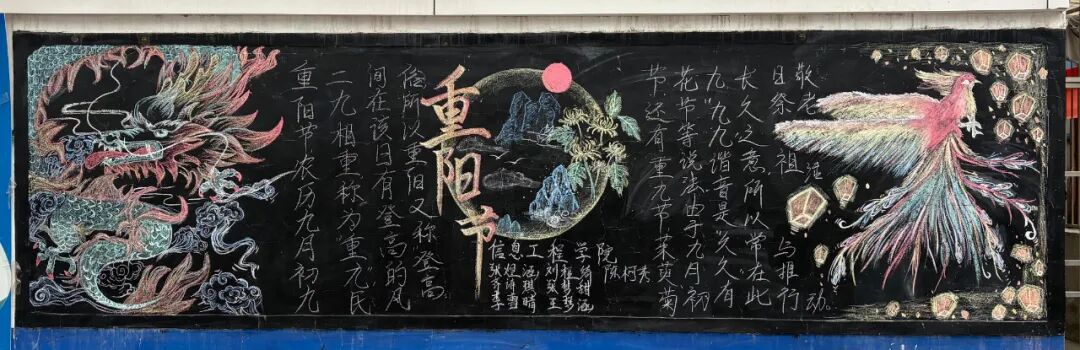 重阳节农历九月初九
二九相重称为"重九"民
间在该日有登高的风
俗所以重阳又称登高
重阳节
信息工程学院
节还有重九节茱萸菊
花节等说法由于九月初
九"九九谐音是"久久有
长久之意所以常在此
日祭祖与推行
敬老活动。